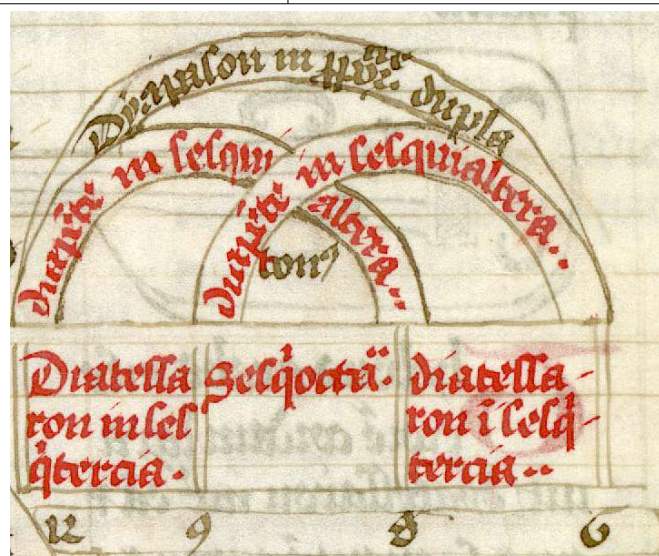 Dyapason in ꝓporcōe dupla
diapēte in sesqui altera..
diapēte in sesquialtera..
tonꝰ
Diatessa
ron in ses
q̇tercia.
Sesq̇octa ͣ.
diatessa-
ron ī sesq̇-
tercia..
12 9 8 6